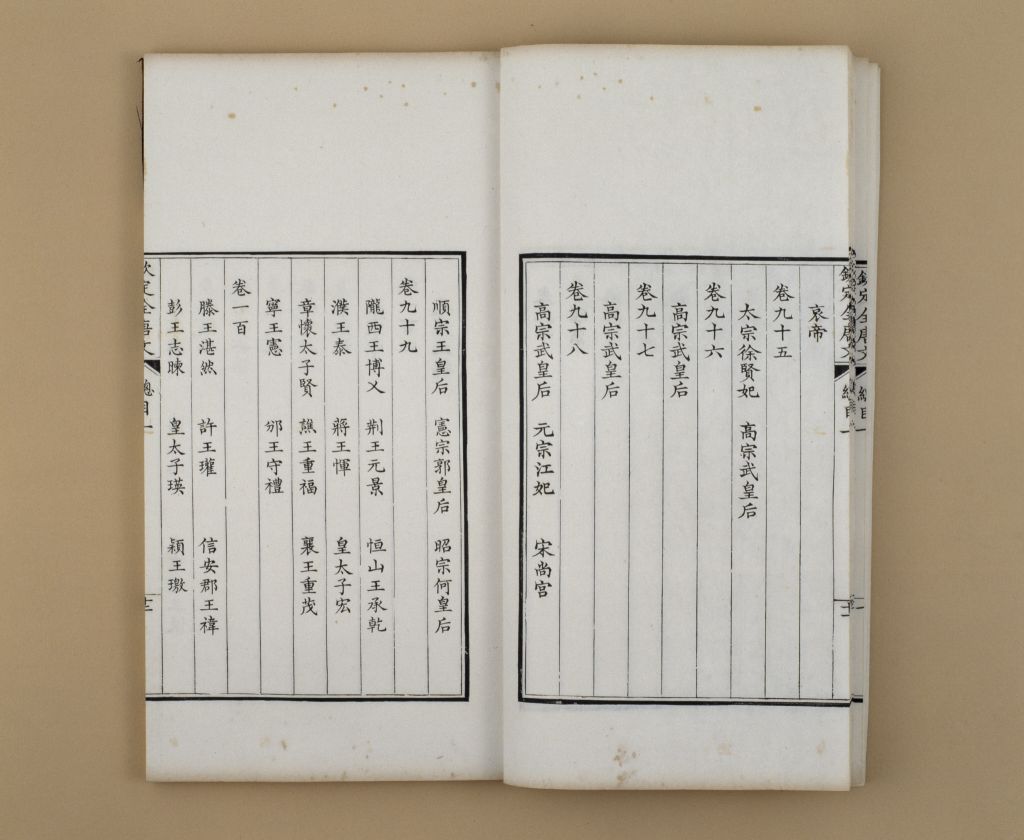 哀帝
卷九十五
太宗徐賢妃 高宗武皇后
卷九十六
高宗武皇后
卷九十七
高宗武皇后
卷九十八
高宗武皇后 元宗江妃 宋尚宫
順宗王皇后 憲宗郭皇后 昭宗何皇后
卷九十九
隴西王博乂 荆王元景 恒山王承乾
濮王泰 蔣王惲 皇太子宏
章懷太子賢 譙王重福 襄王重茂
寧王憲 邠王守禮
卷一百
滕王湛然 許王瓘 信安郡王禕
彭王志暕 皇太子瑛 潁王璬
欽定全唐文 總目一